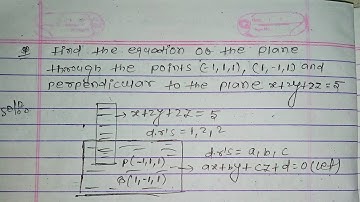 Find the equation of the plane
through the points (-1,1,1), (1,-1,1) and
perpendicular to the plane x+2y+2z=5
Soln:
x+2y+2z=5
d.r's=1,2,2
d.r's=a,b,c
P(-1,1,1)
ax+by+cz+d=0(let)
Q(1,-1,1)